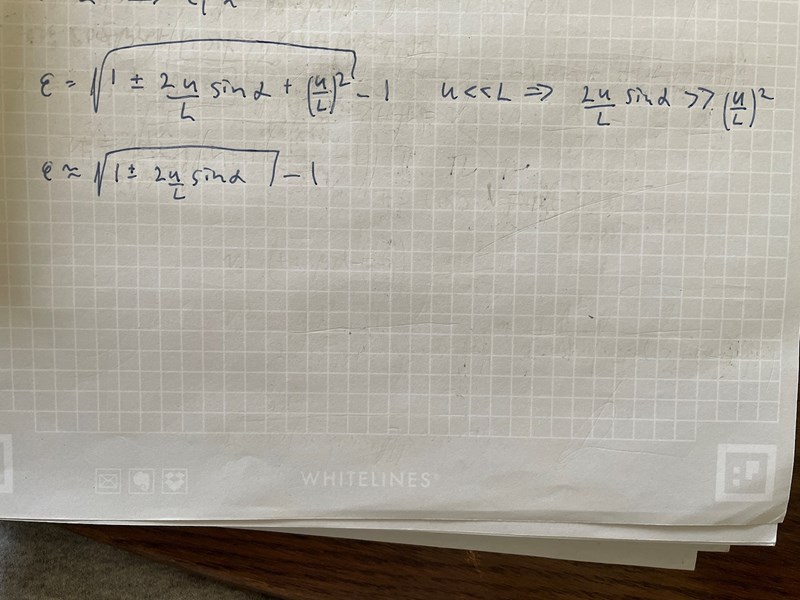 ε = √(1 ± 2u/L sin α + (u/L)²) - 1 u << L => 2u/L sin α >> (u/L)²
ε ≈ √(1 ± 2u/L sin α) - 1
WHITELINES®